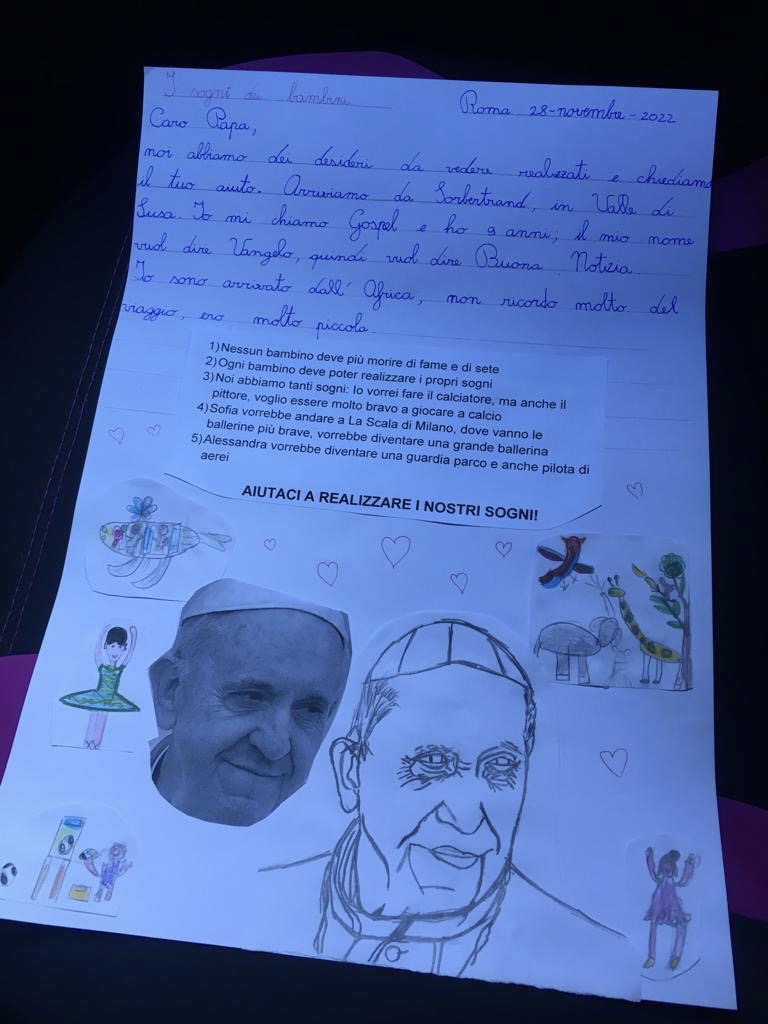 I sogni dei bambini
Roma 28-novembre-2022
Caro Papa,
noi abbiamo dei desideri da vedere realizzati e chiediamo
il tuo aiuto. Arriviamo da Sorbertrand, in Valle di
Susa. Io mi chiamo Gospel e ho 9 anni; il mio nome
vuol dire Vangelo, quindi vuol dire Buona Notizia.
Io sono arrivato dall'Africa, non ricordo molto del
viaggio, ero molto piccola.
1)Nessun bambino deve più morire di fame e di sete
2)Ogni bambino deve poter realizzare i propri sogni
3)Noi abbiamo tanti sogni: Io vorrei fare il calciatore, ma anche il
pittore, voglio essere molto bravo a giocare a calcio
4)Sofia vorrebbe andare a La Scala di Milano, dove vanno le
ballerine più brave, vorrebbe diventare una grande ballerina
5)Alessandra vorrebbe diventare una guardia parco e anche pilota di
aerei
AIUTACI A REALIZZARE I NOSTRI SOGNI!